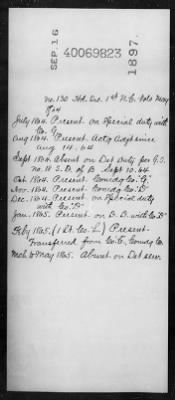 SEP. 16
40069823
1897.
No. 130 Hd. Qrs. 1st N.C. Vols. May
/64
July 1864. Present on Special duty with
Co. G.
Aug 1864. Present. Actg Adjt since
Aug 14. 64
Sept 1864. Absent on Det Duty per G.O.
no. 11 S.D. of B. Sept 10. 64
Oct 1864. Present. Comdg Co. "G"
Nov. 1864. Present Comdg Co. "D"
Dec. 1864. Present on Special duty
with Co. "D"
Jan. 1865. Present on S. D. with Co "D"
Feby 1865. (1 Lt. Co. L) Present
Transferred from Co. G. Comdg Co.
Mch to May 1865. Absent on Det serv.